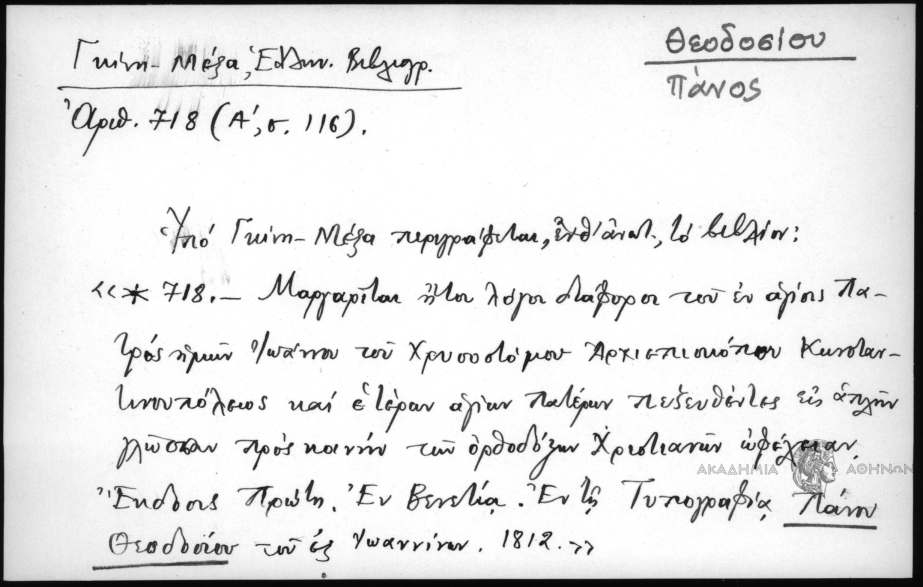 Θεοδοσίου
Πάνος
Γκίνη - Μέξα, Ἑλλην. Βιβλιογρ.
Ἀριθ. 718 (Α΄, σ. 116).
Ὑπό Γκίνη - Μέξα περιγράφεται, ἔνθ' ἀνωτ., τό βιβλίον:
«* 718. — Μαργαρῖται ἤτοι λόγοι διάφοροι τοῦ ἐν ἁγίοις Πα-
τρός ἡμῶν Ἰωάννου τοῦ Χρυσοστόμου Ἀρχιεπισκόπου Κωνσταν-
τινουπόλεως καί ἑτέρων ἁγίων Πατέρων πεζευθέντες εἰς ἁπλῆν
γλῶσσαν πρός κοινήν τῶν ὀρθοδόξων Χριστιανῶν ὠφέλειαν.
ΑΚΑΔΗΜΙΑ ΑΘΗΝΩΝ
Ἔκδοσις Πρώτη. Ἐν Βενετίᾳ. Ἐν τῇ Τυπογραφίᾳ Πάνου
Θεοδοσίου τοῦ ἐξ Ἰωαννίνων. 1812.»